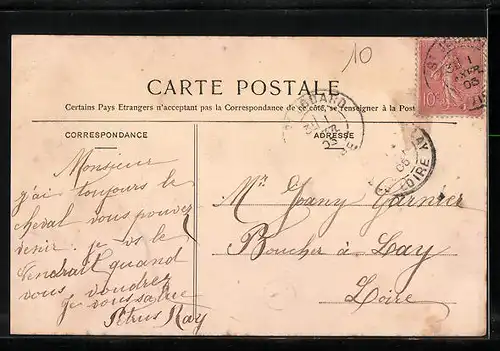 10
CARTE POSTALE
Certains Pays Etrangers n'acceptant pas la Correspondance de ce côté, se renseigner à la Post
CORRESPONDANCE
ADRESSE
Monsieur
j'ai toujours le
cheval vous pouvez
venir. je vs le
vendrait quand
vous voudrez
je vous salue
Petrus Ray
Mr. Joany Garnier
Boucher à Lay
Loire
10
LOIRE